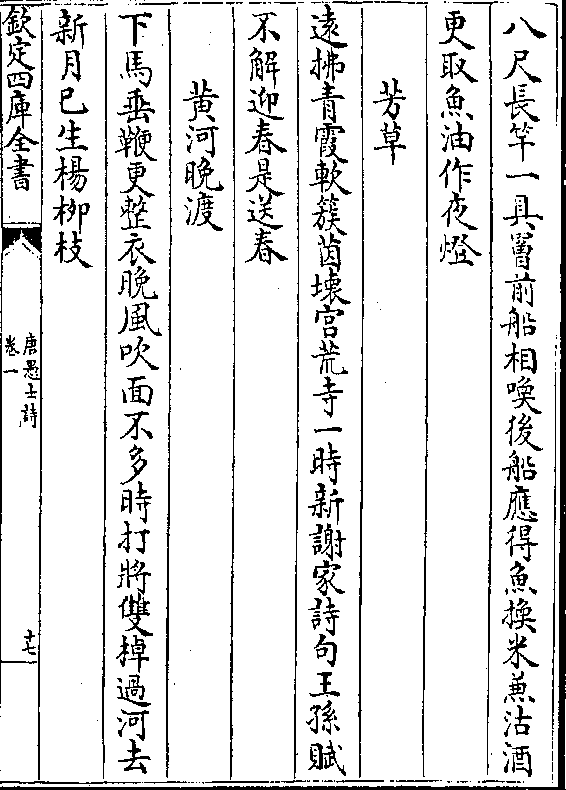 八尺長竿一具罾前船相喚後船應得魚換米兼沽酒
更取魚油作夜燈
芳草
遠拂青霞軟簇茵壊宫荒寺一時新謝家詩句王孫賦
不解迎春是送春
黄河晚渡
下馬垂鞭更整衣晚風吹面不多時打將雙掉過河去
新月已生楊柳枝
欽定四庫全書
唐愚士詩
卷一
十七